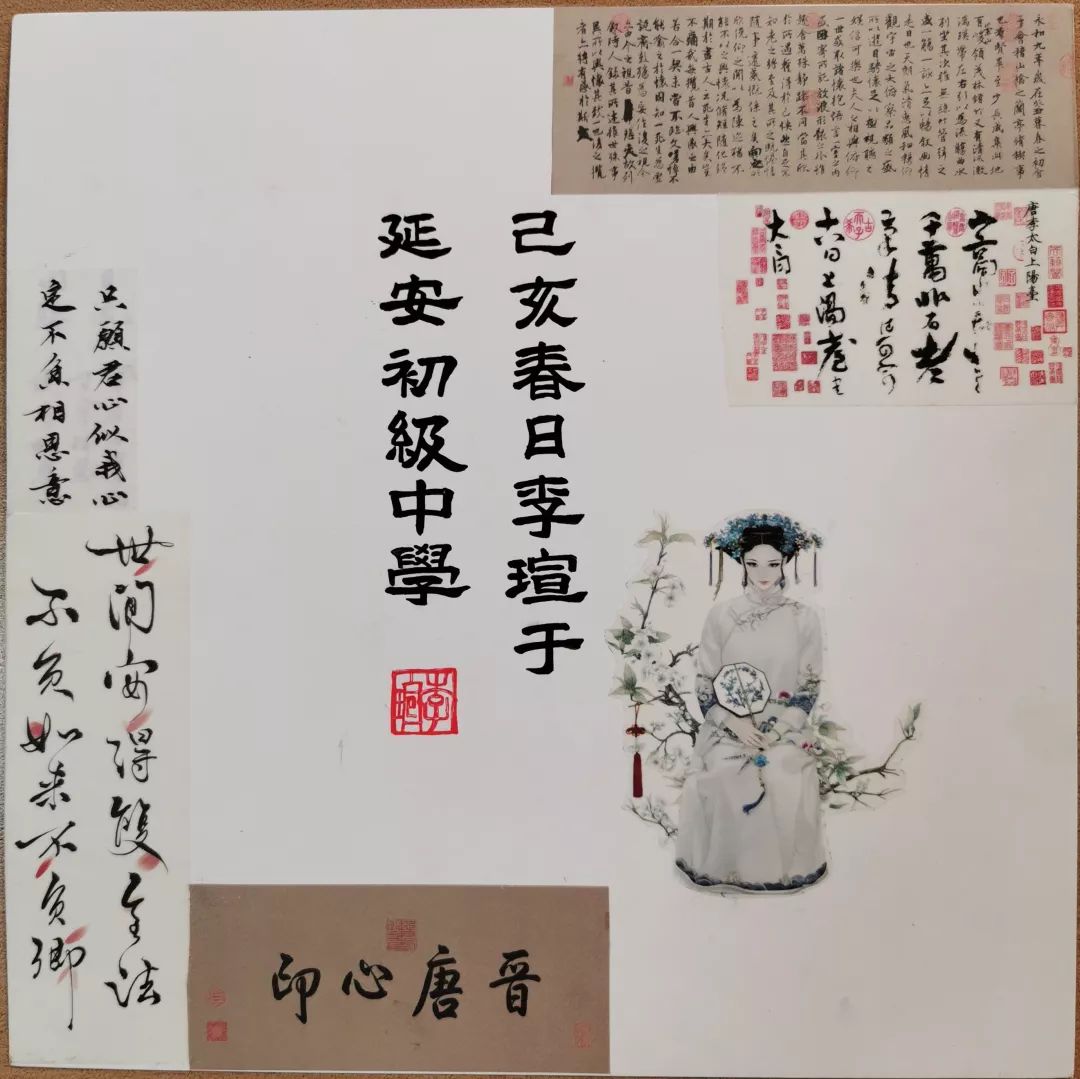 永和九年歲在癸丑暮春之初會
于會稽山陰之蘭亭脩禊事
也羣賢畢至少長咸集此地
有崇山峻領茂林脩竹又有清流激
湍暎帶左右引以為流觴曲水
列坐其次雖無絲竹管弦之
盛一觴一詠亦足以暢敘幽情
是日也天朗氣清惠風和暢仰
觀宇宙之大俯察品類之盛
所以遊目騁懷足以極視聽之
娛信可樂也夫人之相與俯仰
一世或取諸懷抱悟言一室之內
或因寄所託放浪形骸之外雖
趣舍萬殊靜躁不同當其欣
於所遇蹔得於己快然自足不
知老之將至及其所之既惓情
隨事遷感慨係之矣向之所
欣俛仰之閒以為陳迹猶不
能不以之興懷況脩短隨化終
期於盡古人云死生亦大矣豈
不痛哉每攬昔人興感之由
若合一契未嘗不臨文嗟悼不
能喻之於懷固知一死生為虛
誕齊彭殤為妄作後之視今
亦由今之視昔悲夫故列
敘時人錄其所述雖世殊事
異所以興懷其致一也後之攬
者亦將有感於斯文
唐李太白上陽臺
山高水長物象
千萬非有老筆
清壯何窮
十八日上陽臺書
太白
己亥春日李瑄于
延安初級中學
只願君心似我心
定不負相思意
世间安得雙全法
不负如来不负卿
晋唐心印